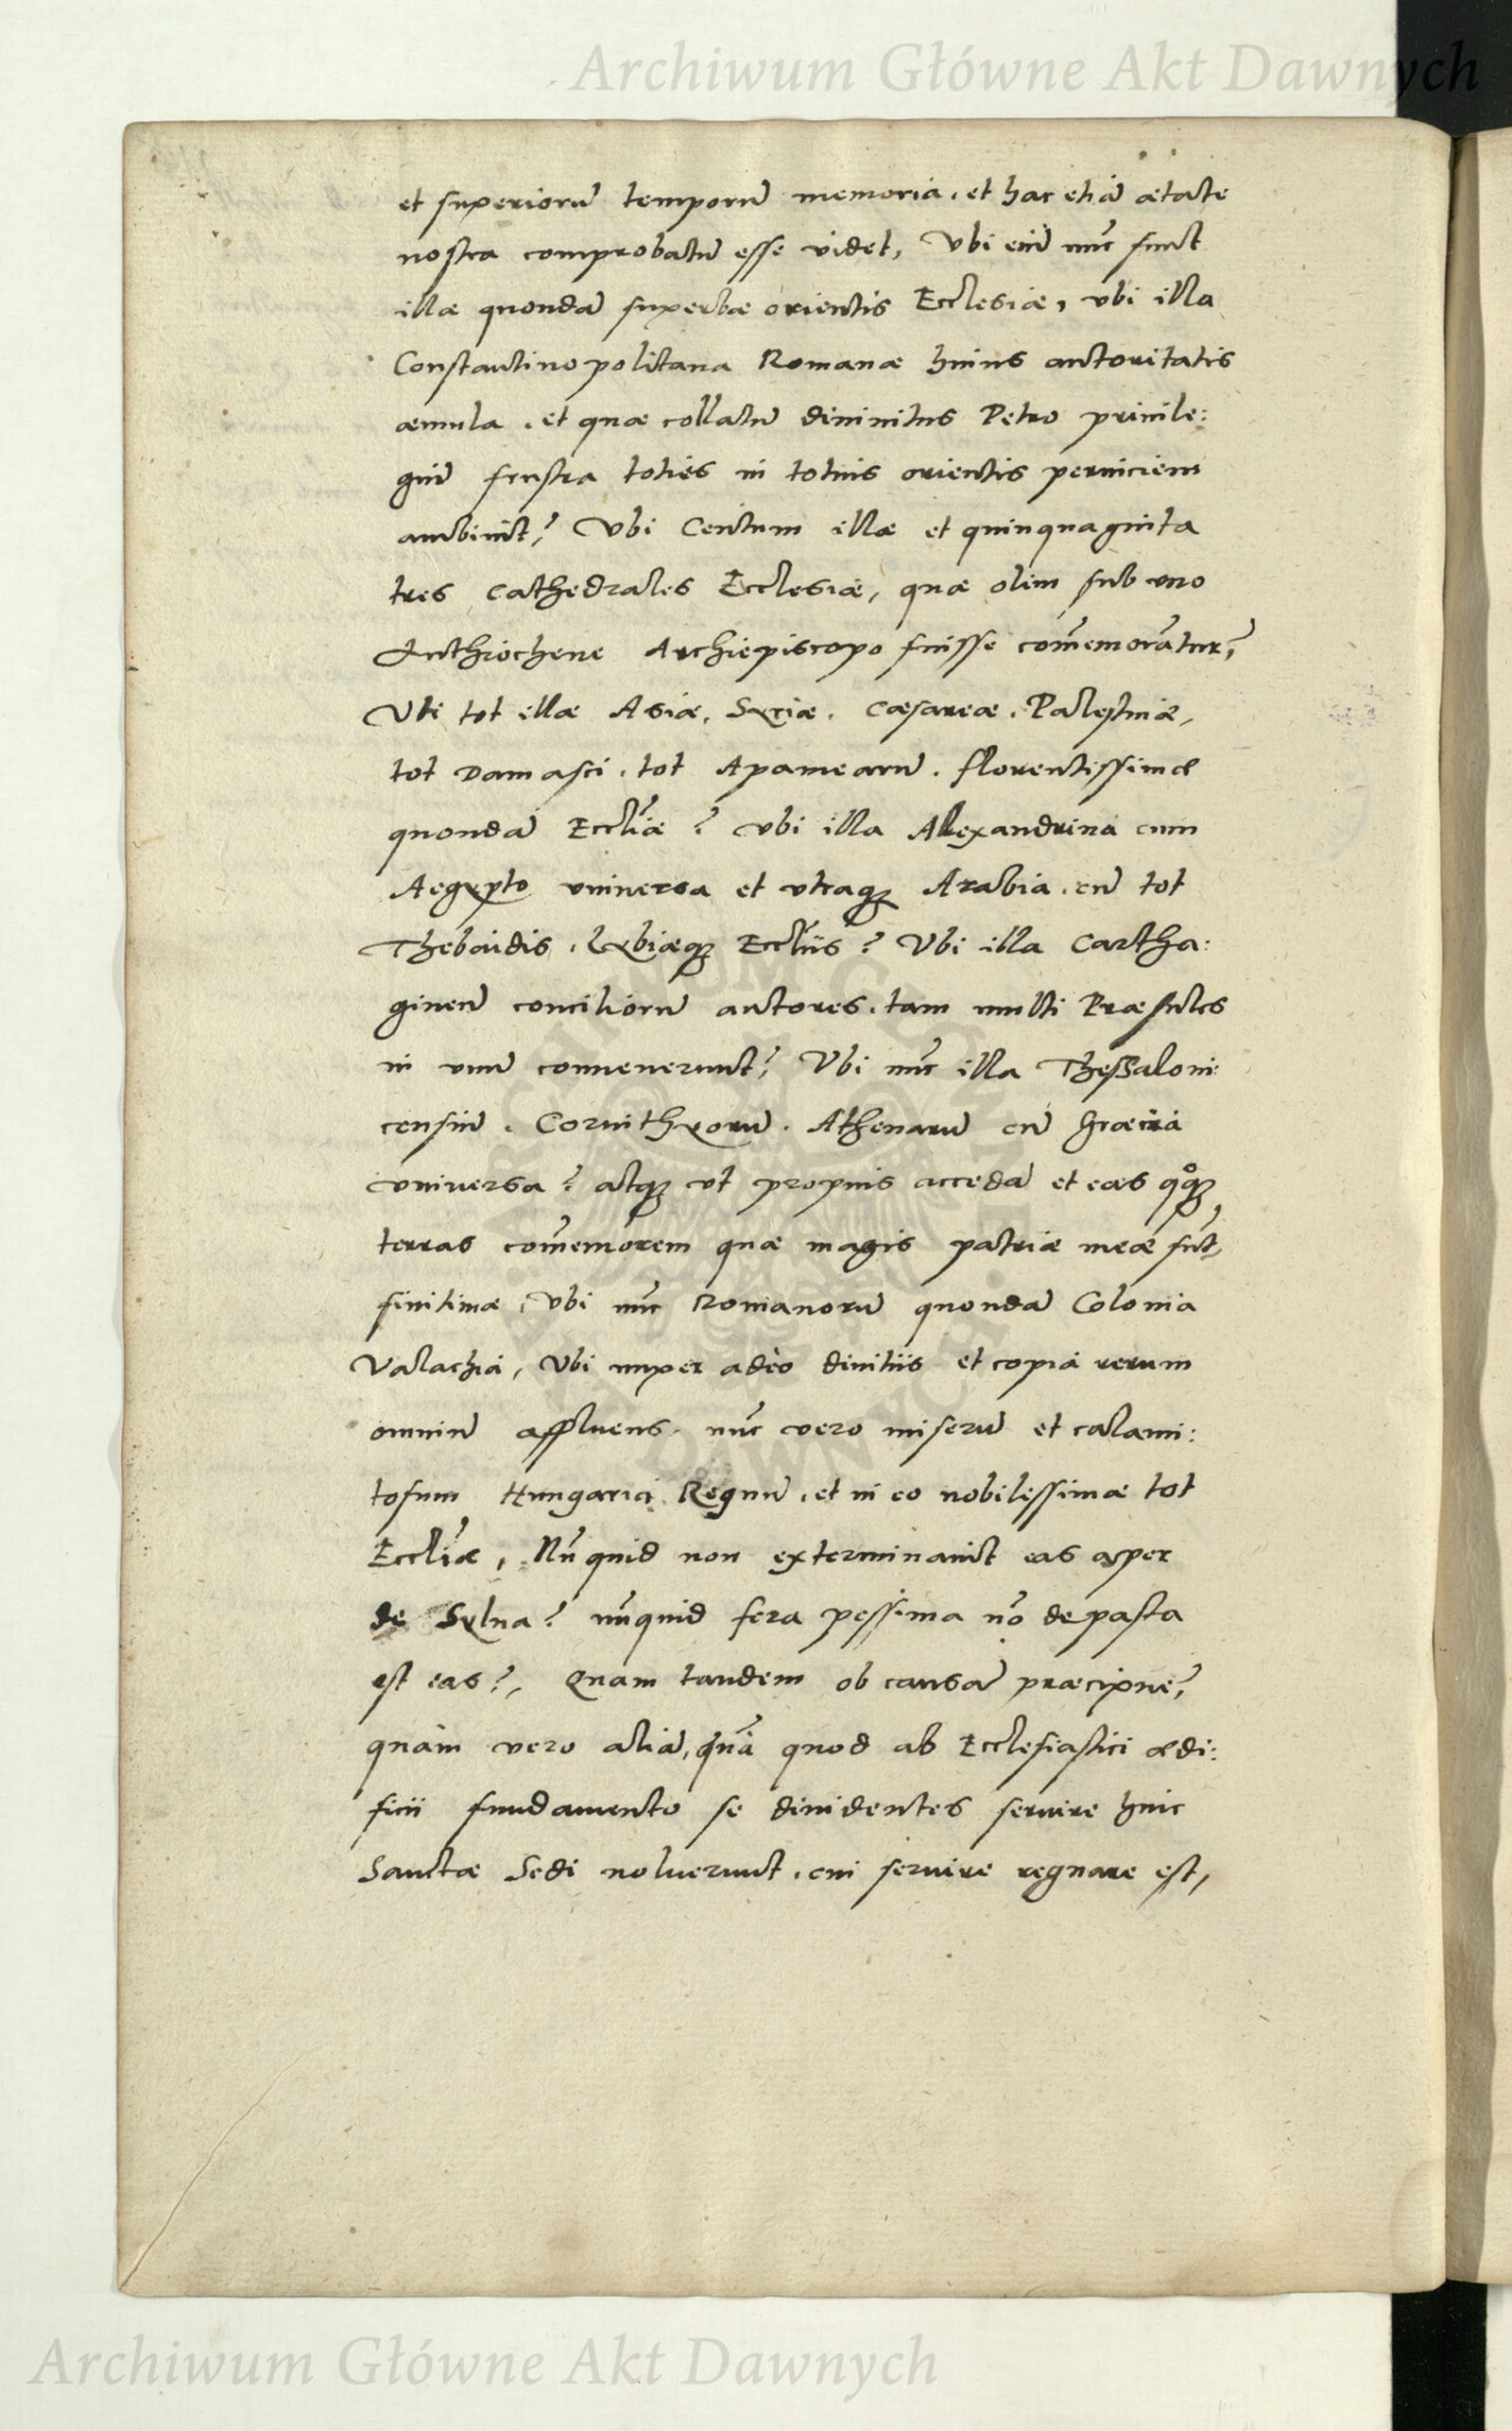 Archiwum Główne Akt Dawnych
et superiorū temporū memoria, et hac etiā ætate
nostra comprobatū esse videt, Vbi enī nūc sunt
illæ quondā superbæ orientis Ecclesiæ, vbi illa
Constantinopolitana Romanæ huius autoritatis
æmula, et quæ collatū diuinitus Petro priuile:
giū frustra toties in totius orientis perniciem
ambiuit? Vbi Centum illæ et quinquaginta
tres Cathedrales Ecclesiæ, quæ olim sub vno
Anthiochene Archiepiscopo fuisse com̄emorātur?
Vbi tot illæ Asiæ, Syriæ, Cæsareæ, Palestinæ,
tot Damasci, tot Apamearū, florentissimæ
quondā Eccl̄iæ? vbi illa Alexandrina cum
Aegypto vniuersa et vtraq; Arabia, cū tot
Thebaidis, Lybiæq; Eccl̄iis? Vbi illa Cartha:
ginen̄ conciliorū autores, tam multi Præsules
in vnū conuenerunt? Vbi nūc illa Thessaloni:
censiū, Corinthyorū, Athenarū cū Græcia
vniuersa? atq; vt propius accedā et eas qoq;
terras com̄emorem quæ magis patriæ meæ sūt
finitimæ, Vbi nūc Romanorū quondā Colonia
Valachia, Vbi nuper adeo diuitiis et copia rerum
omniū affluens, nūc vero miserū et calami:
tosum Hungarici Regnū, et in eo nobilessimæ tot
Eccl̄iæ, Nū quid non exterminauit eas asper
de Sylua? nūquid fera pessima nō depasta
est eas?, Quam tandem ob causā præcipue?
quàm vero aliā, quā quod ab Ecclesiastici ædi:
ficii fundamento se diuidentes seruire huic
Sanctæ Sedi noluerunt, cui seruire regnare est,
Archiwum Główne Akt Dawnych